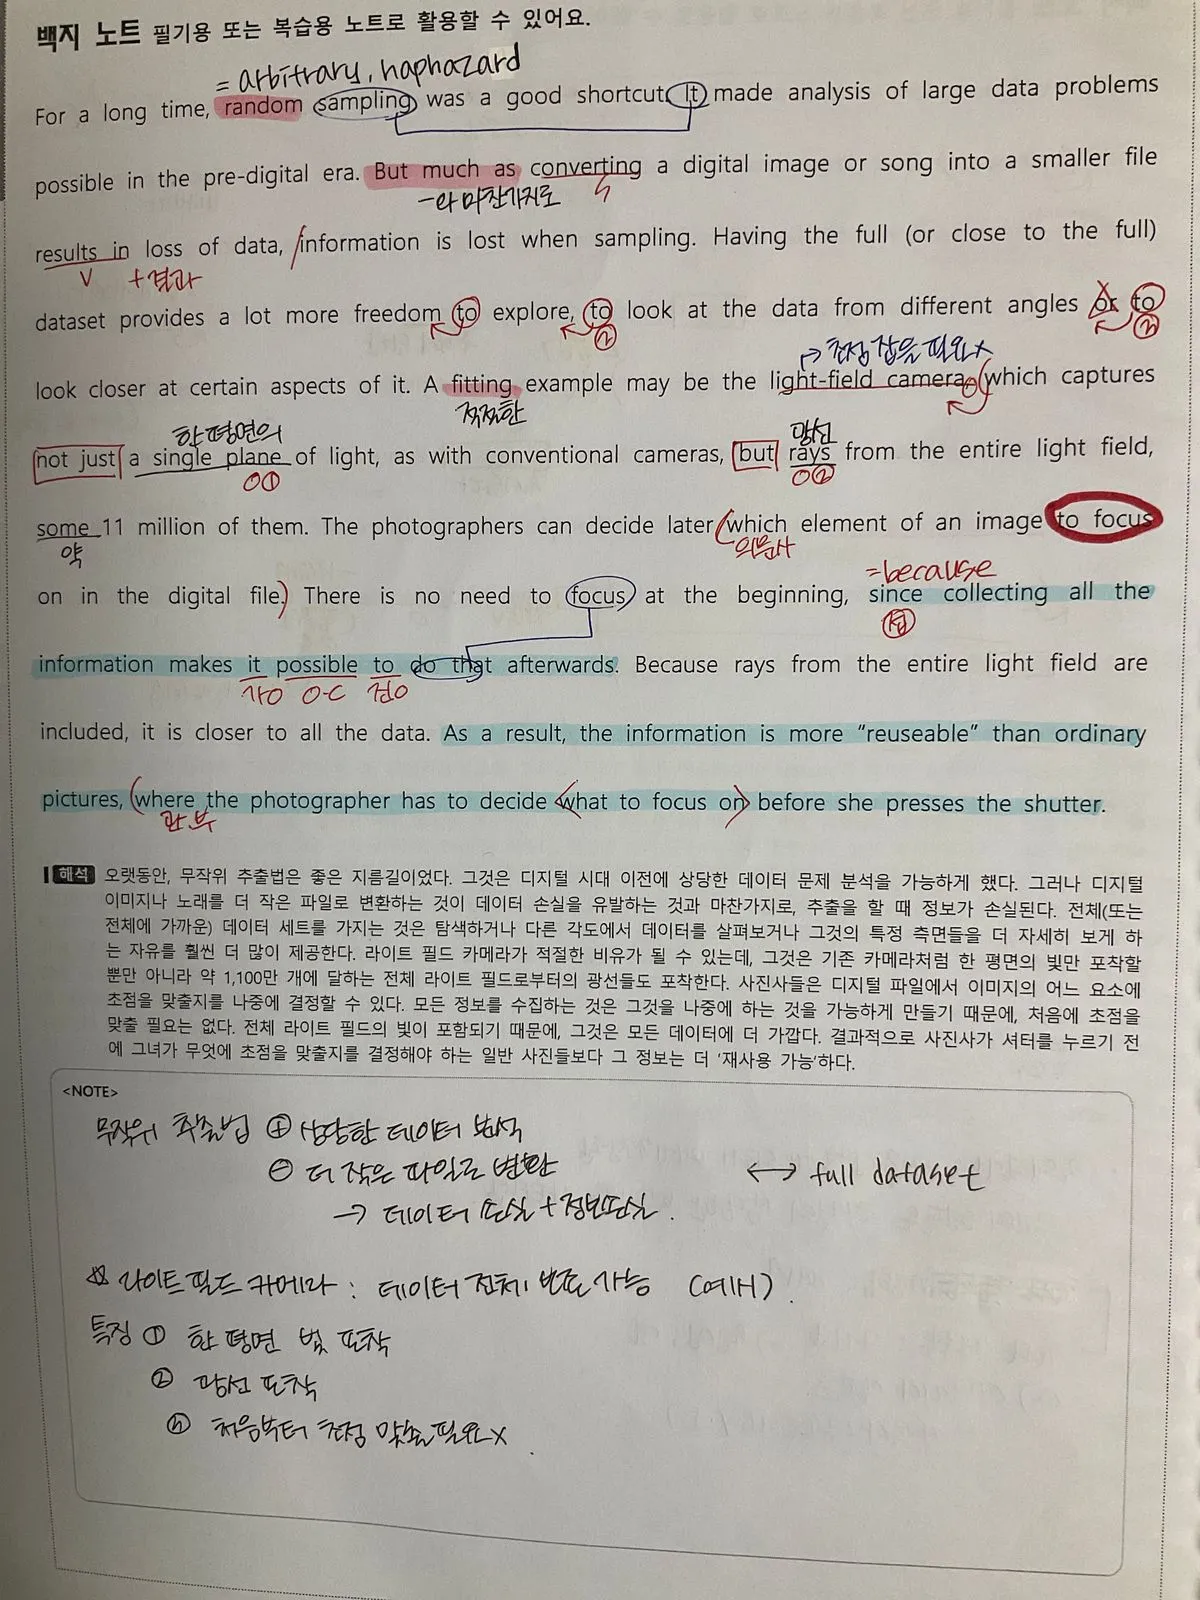 백지 노트 필기용 또는 복습용 노트로 활용할 수 있어요.
= arbitrary, haphazard
For a long time, random sampling was a good shortcut. It made analysis of large data problems
possible in the pre-digital era. But much as converting a digital image or song into a smaller file
-와 마찬가지로 S
results in loss of data, information is lost when sampling. Having the full (or close to the full)
V + 결과
dataset provides a lot more freedom to explore, to look at the data from different angles or to
② ③
→ 초점 잡을 필요 x
look closer at certain aspects of it. A fitting example may be the light-field camera, which captures
적절한
한 평면의 광선
not just a single plane of light, as with conventional cameras, but rays from the entire light field,
O① O②
some 11 million of them. The photographers can decide later which element of an image to focus
약 의문사
=because
on in the digital file. There is no need to focus at the beginning, since collecting all the
접
information makes it possible to do that afterwards. Because rays from the entire light field are
가O O·C 진O
included, it is closer to all the data. As a result, the information is more “reuseable” than ordinary
pictures, where the photographer has to decide what to focus on before she presses the shutter.
관.부
해석 오랫동안, 무작위 추출법은 좋은 지름길이었다. 그것은 디지털 시대 이전에 상당한 데이터 문제 분석을 가능하게 했다. 그러나 디지털
이미지나 노래를 더 작은 파일로 변환하는 것이 데이터 손실을 유발하는 것과 마찬가지로, 추출을 할 때 정보가 손실된다. 전체(또는
전체에 가까운) 데이터 세트를 가지는 것은 탐색하거나 다른 각도에서 데이터를 살펴보거나 그것의 특정 측면들을 더 자세히 보게 하
는 자유를 훨씬 더 많이 제공한다. 라이트 필드 카메라가 적절한 비유가 될 수 있는데, 그것은 기존 카메라처럼 한 평면의 빛만 포착할
뿐만 아니라 약 1,100만 개에 달하는 전체 라이트 필드로부터의 광선들도 포착한다. 사진사들은 디지털 파일에서 이미지의 어느 요소에
초점을 맞출지를 나중에 결정할 수 있다. 모든 정보를 수집하는 것은 그것을 나중에 하는 것을 가능하게 만들기 때문에, 처음에 초점을
맞출 필요는 없다. 전체 라이트 필드의 빛이 포함되기 때문에, 그것은 모든 데이터에 더 가깝다. 결과적으로 사진사가 셔터를 누르기 전
에 그녀가 무엇에 초점을 맞출지를 결정해야 하는 일반 사진들보다 그 정보는 더 ‘재사용 가능’하다.
<NOTE>
무작위 추출법 ⊕ 상당한 데이터 분석
⊖ 더 작은 파일로 변환 ↔ full dataset
→ 데이터 손실 + 정보손실.
☆ 라이트 필드 카메라 : 데이터 전체 보존 가능 (예시)
특징 ① 한 평면 빛 포착
② 광선 포착
③ 처음부터 초점 맞출 필요 x